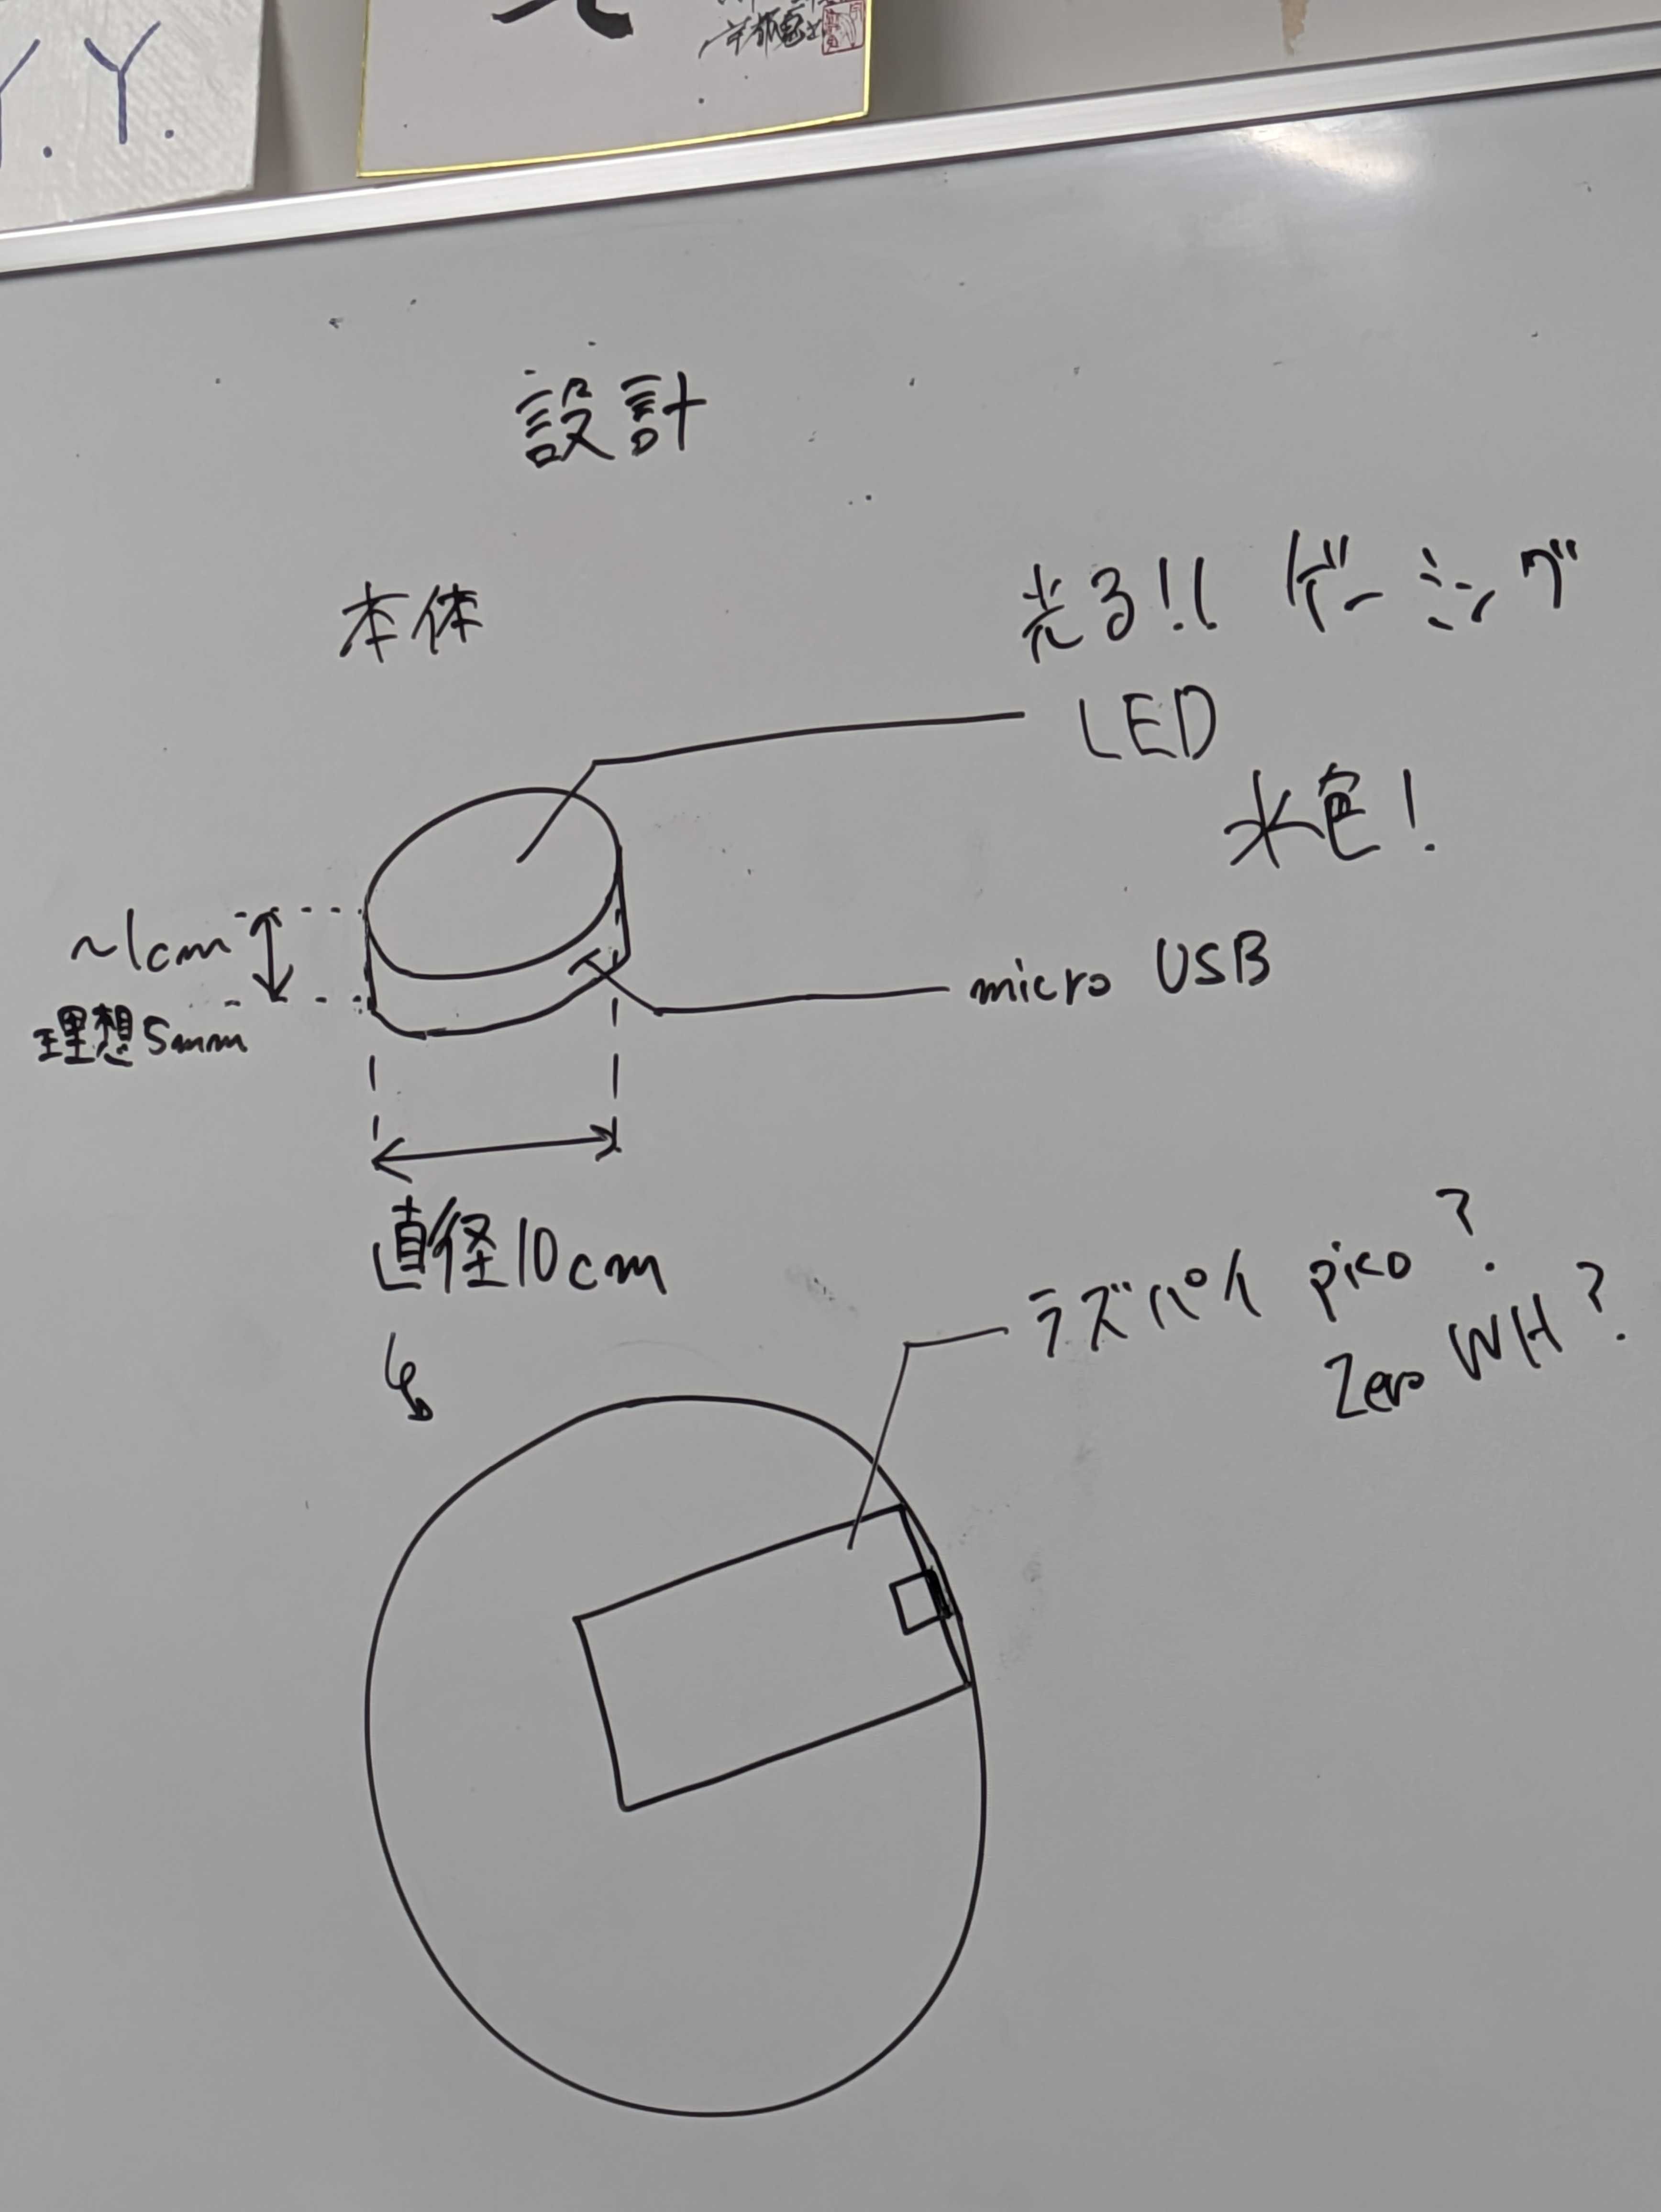 Y.Y.
設計
本体
光る!! ゲーミング
LED
水色!
~1cm
理想5mm
micro USB
直径10cm
ラズパイ pico?
Zero WH?